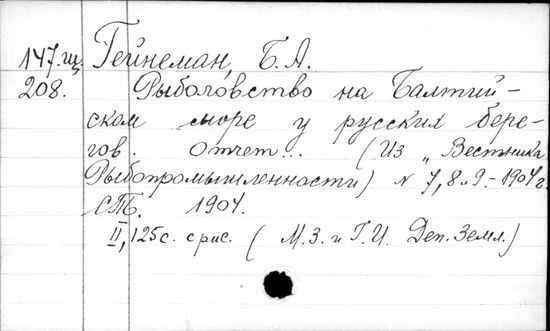 147.щ. Гейнеман, Б. А.
208. Рыболовство на Балтий-
ском море у русских бере-
гов. Отчет... (Из „Вестника
Рыбопромышленности) N 7, 8 и 9. - 1904 г.
СПБ. 1904.
II, 125 с. с рис. (М. З. и Г. И. Деп. Земл.)